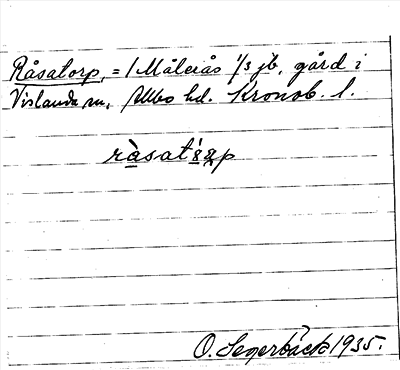 Råsatorp, = 1 Målerås 1/3 jb, gård i
Vislanda sn, Allbo hd. Kronob. l.
O. Segerbäck 1935.